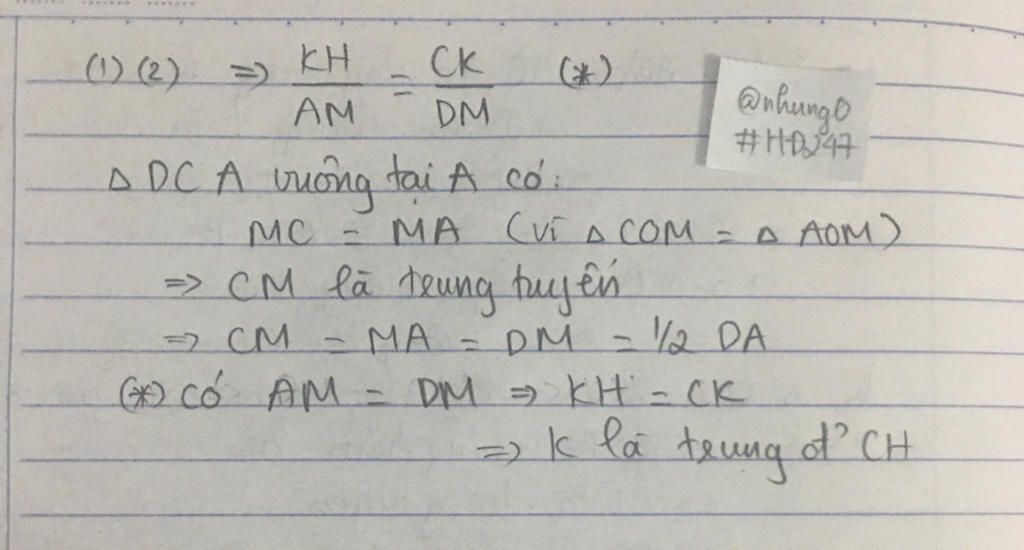 (1) (2) ⇒ KH/AM = CK/DM (*)
@nhung0
#HD247
△ DCA vuông tại A có:
MC = MA (vì △ COM = △ AOM)
⇒ CM là trung tuyến
⇒ CM = MA = DM = 1/2 DA
(*) có AM = DM ⇒ KH = CK
⇒ K là trung đ² CH